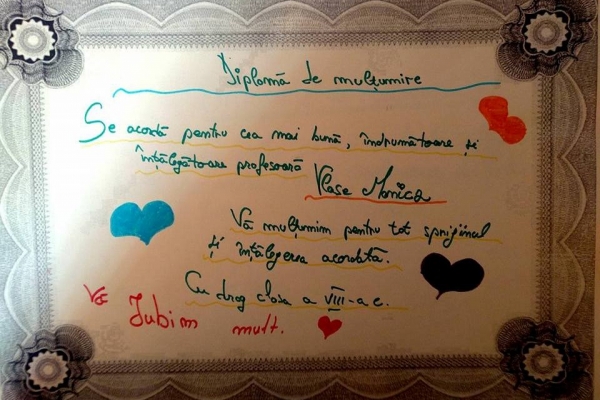 Diplomă de mulțumire
Se acordă pentru cea mai bună, îndrumătoare și
înțălegătoare profesoară Vlase Monica
Vă mulțumim pentru tot sprijinul
și înțălegerea acordată.
Cu drag clasa a VIII-a c.
Vă Iubim mult.